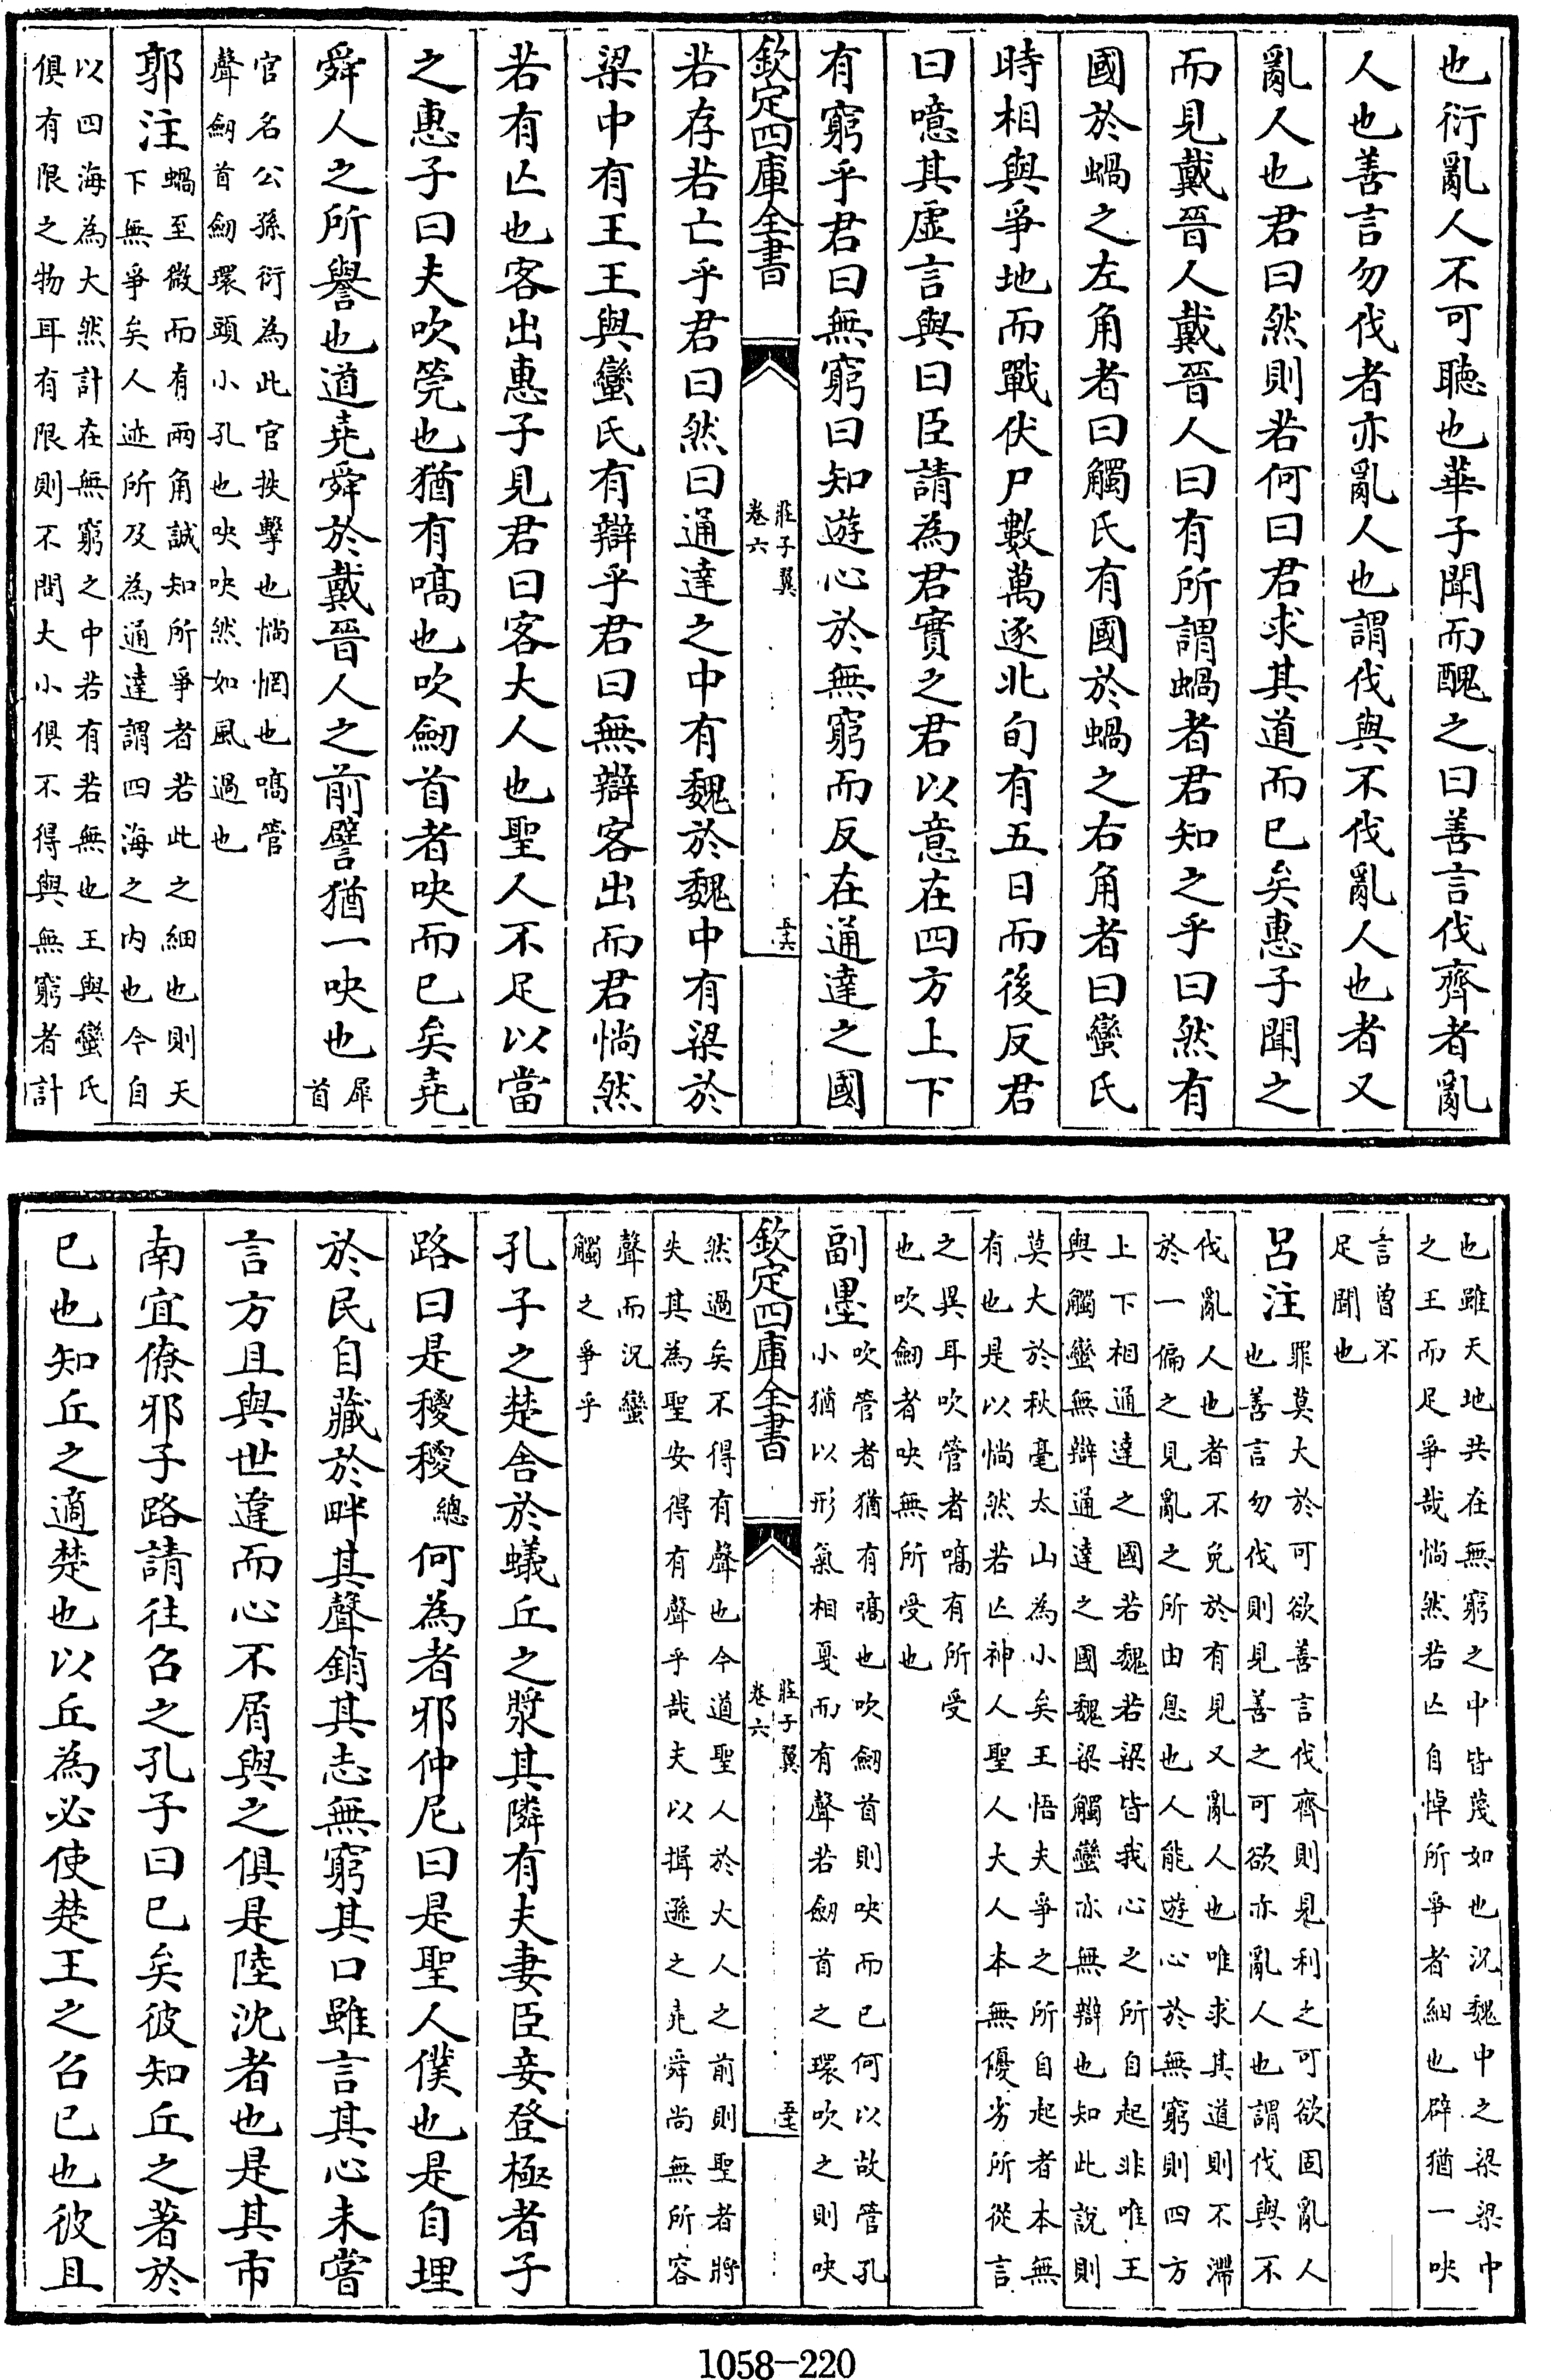 也衍亂人不可聽也華子聞而醜之曰善言伐齊者亂
人也善言勿伐者亦亂人也謂伐與不伐亂人也者又
亂人也君曰然則若何曰君求其道而已矣惠子聞之
而見戴晉人戴晉人曰有所謂蝸者君知之乎曰然有
國於蝸之左角者曰觸氏有國於蝸之右角者曰蠻氏
時相與爭地而戰伏尸數萬逐北旬有五日而後反君
曰噫其虛言與曰臣請為君實之君以意在四方上下
有窮乎君曰無窮曰知遊心於無窮而反在通達之國
欽定四庫全書
莊子翼
卷六
五六
若存若亡乎君曰然曰通達之中有魏於魏中有梁於
梁中有王王與蠻氏有辯乎君曰無辯客出而君惝然
若有亾也客出惠子見君曰客大人也聖人不足以當
之惠子曰夫吹筦也猶有嗃也吹劒首者吷而已矣堯
舜人之所譽也道堯舜於戴晉人之前譬猶一吷也犀
首
官名公孫衍為此官抶擊也惝惘也嗃管
聲劒首劒環頭小孔也吷吷然如風過也
郭注蝸至微而有兩角誠知所爭者若此之細也則天
下無爭矣人迹所及為通達謂四海之內也今自
以四海為大然計在無窮之中若有若無也王與蠻氏
俱有限之物耳有限則不問大小俱不得與無窮者計
也雖天地共在無窮之中皆蔑如也況魏中之梁梁中
之王而足爭哉惝然若亾自悼所爭者細也辟猶一吷
言曾不
足聞也
呂注罪莫大於可欲善言伐齊則見利之可欲固亂人
也善言勿伐則見善之可欲亦亂人也謂伐與不
伐亂人也者不免於有見又亂人也唯求其道則不滯
於一偏之見亂之所由息也人能遊心於無窮則四方
上下相通達之國若魏若梁皆我心之所自起非唯王
與觸蠻無辯通達之國魏梁觸蠻亦無辯也知此說則
莫大於秋毫太山為小矣王悟夫爭之所自起者本無
有也是以惝然若亾神人聖人大人本無優劣所從言
之異耳吹管者嗃有所受
也吹劒者吷無所受也
副墨吹管者猶有嗃也吹劒首則吷而已何以故管孔
小猶以形氣相戛而有聲若劒首之環吹之則吷
欽定四庫全書
莊子翼
卷六
五七
然過矣不得有聲也今道聖人於大人之前則聖者將
失其為聖安得有聲乎哉夫以揖遜之堯舜尚無所容
聲而況蠻
觸之爭乎
孔子之楚舍於蟻丘之漿其隣有夫妻臣妾登極者子
路曰是稯稯總何為者邪仲尼曰是聖人僕也是自埋
於民自藏於畔其聲銷其志無窮其口雖言其心未嘗
言方且與世違而心不屑與之俱是陸沈者也是其市
南宜僚邪子路請往召之孔子曰已矣彼知丘之著於
已也知丘之適楚也以丘為必使楚王之召已也彼且
1058-220